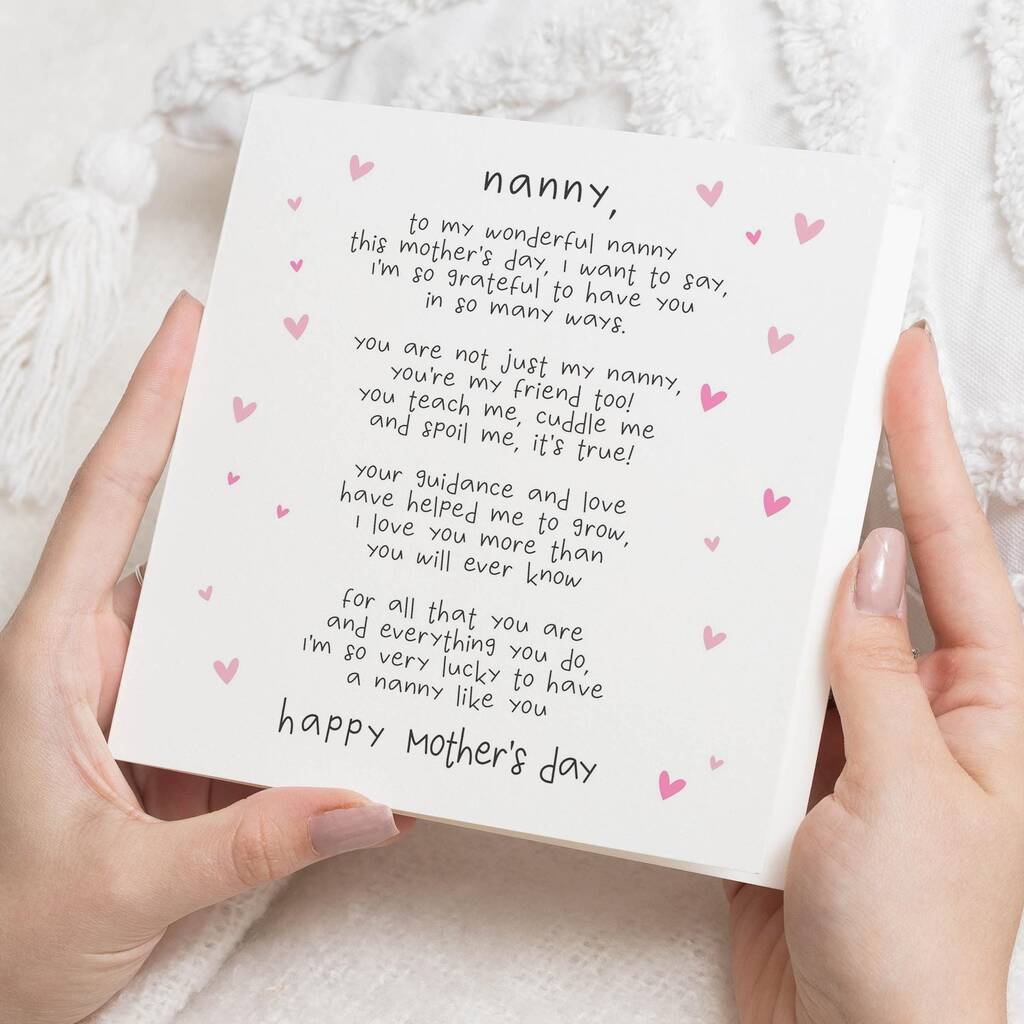 nanny,
to my wonderful nanny
this mother's day, I want to say,
I'm so grateful to have you
in so many ways.
you are not just my nanny,
you're my friend too!
you teach me, cuddle me
and spoil me, it's true!
your guidance and love
have helped me to grow,
I love you more than
you will ever know
for all that you are
and everything you do,
I'm so very lucky to have
a nanny like you
happy Mother's day